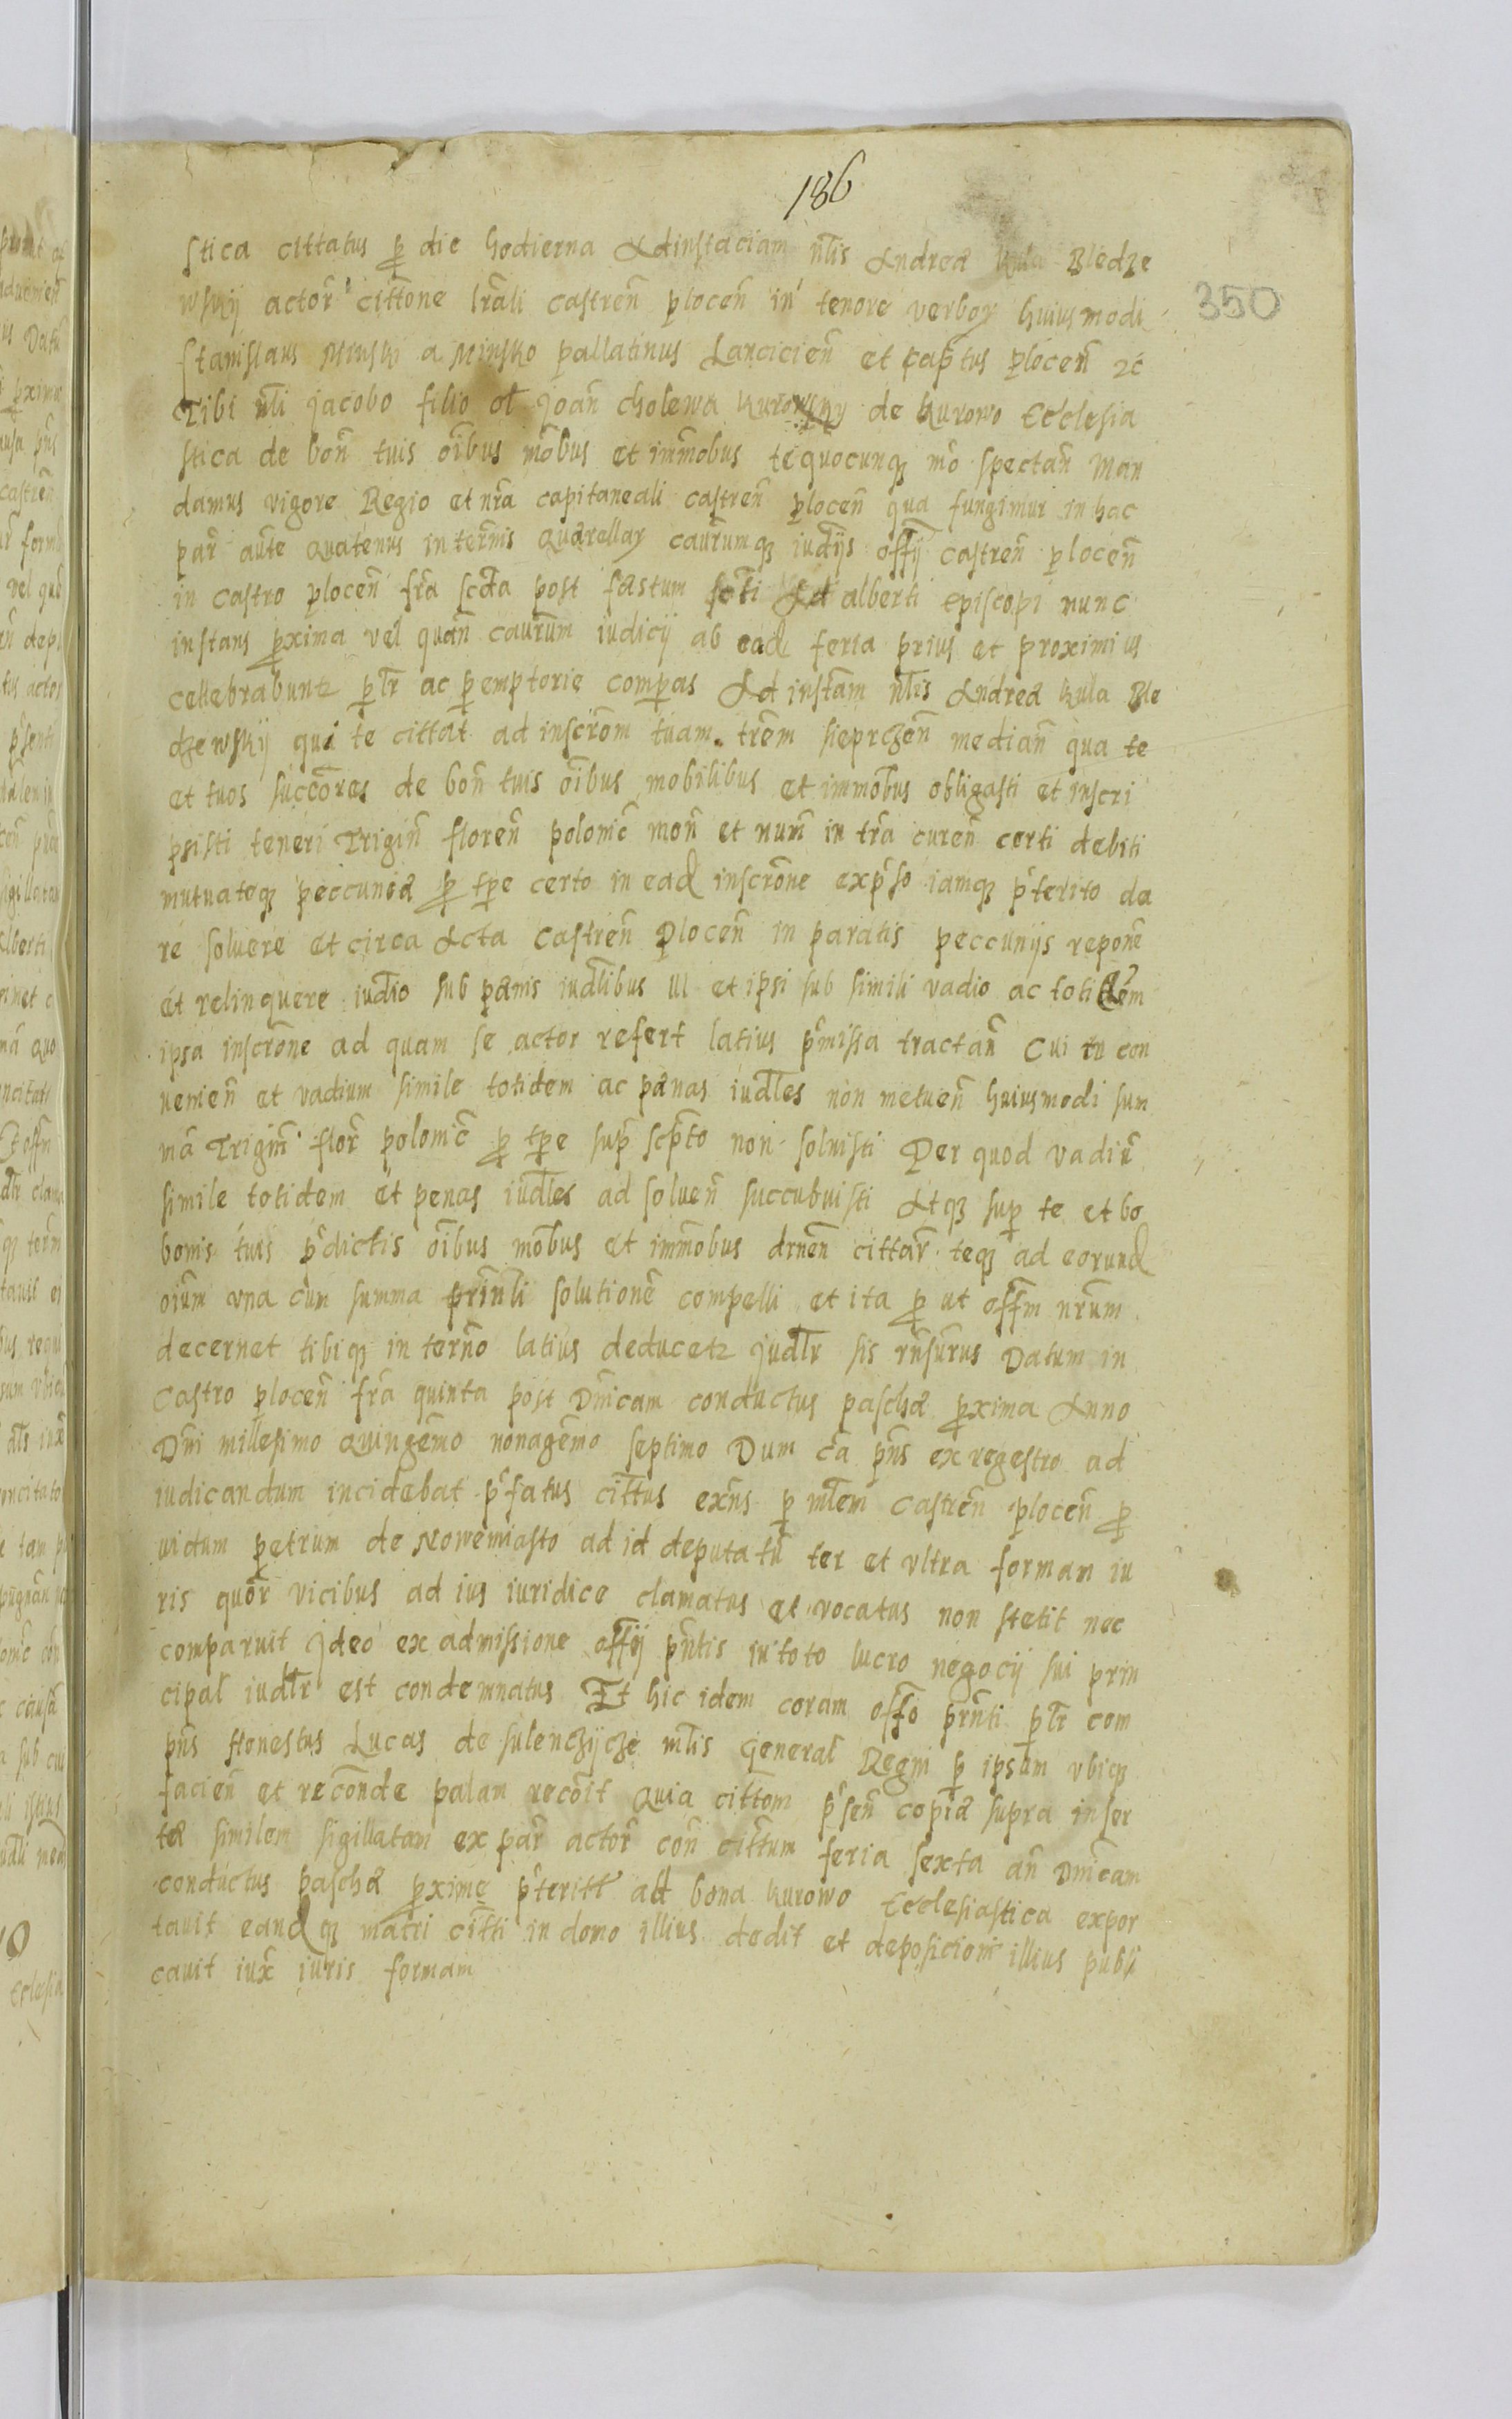 186
350
stica cittatus p̱ die hodierna Ad instaciam nlĩs Andreæ Kula Bledze
wskij actor̃ cittõne lrãli castreñ ploceñ in tenore verbor huiusmodi
Stanislaus Minski a Minsko pallatinus Lancicieñ et capẽtus ploceñ zc̃
Tibi nl̃i Jacobo filio ol̃ Joañ Cholewa Kurowsky de Kurowo Ecclesia
stica de boñ tuis oĩbus mõbus et immõbus tequocunqꝫ mõ spectañ Man
damus vigore Regio et nrã capitaneali castreñ ploceñ qua fungimur in hac
par̃ aũte Quatenus in termĩs Quærellar caurũmqꝫ iudijs offij castreñ ploceñ
in castro ploceñ frã scdã post fæstum scti Ad alberti Episcopi nunc
instans p̱xima vel quañ caurũm iudicij ab ead feria prius et proximius
cellebrabuntr pl̃r ac p̱emptorie comp̱as Ad instam nlĩs Andreæ Kula Ble
dzewskij qui te cittat ad inscrõm tuam trẽm sieprczeñ mediañ qua te
et tuos succõres de boñ tuis oĩbus mobilibus et immõbus obligasti et inscri
psisti teneri Trigiñ floreñ polonic̃ moñ et num̃ in trã cureñ certi debiti
mutuateqꝫ peccuniæ p̱ tp̃e certo in ead inscrõne exp̃so iamqꝫ p̃terito da
re soluere et circa Acta Castreñ Ploceñ in paratis peccunijs reponẽ
et relinquere iudio sub pænis iudlibus Ul et ipsi sub simili vadio ac totidem
ipsa inscrõne ad quam se actor refert latius p̃missa tractañ Cui tu con
uenieñ et vadium simile totidem ac pænas iudles non metueñ huiusmodi sum
mã Trigiñ flor̃ polonic̃ p̱ tp̃e sup̃ scp̃to non soluisti Per quod vadiũ
simile totidem et penas iudles ad solueñ succubuisti Atqꝫ sup̱ te et bo
bonis tuis p̃dictis oĩbus mõbus et immõbus drneñ cittar̃ teqꝫ ad eorund
oĩum vna cum summa prinli solutionẽ compelli et ita p̱ ut offm nrũm
decernet tibiqꝫ in termño latius deducetr judlr sis rñsurus Datum in
Castro ploceñ frã quinta post Dnĩcam conductus paschæ p̱xima Anno
Dnĩ millesimo Quingemõ nonagemõ septimo Dum cã pñs ex regestro ad
iudicandum incidebat p̃fatus cittus exñs p̱ mlẽm Castreñ ploceñ p̱
uidum petrum de Nowemiasto ad id deputatũ ter et vltra formam iu
ris quor̃ vicibus ad ius iuridice clamatus et vocatus non stetit nec
comparuit Jdeo ex admissione offij pñtis in toto lucro negocij sui prin
cipal iudlr est condemnatus Et hic idem coram offõ prñti pl̃r com
pñs Honestus Lucas de sulenczijcze mlĩs General Regni p̱ ipsum vbiqꝫ
facieñ et recõnde palam recõit Quia cittõm p̃señ copiæ supra inser
tæ similem sigillatam ex par̃ actor̃ coñ cittum feria sexta añ Dnĩcam
conductus paschæ p̱xime p̃teritt ad bona Kurowo Ecclesiastica expor
tauit eandqꝫ matri citti in domo illius dedit et deposicionẽ illius publi
cauit iux̃ iuris formam